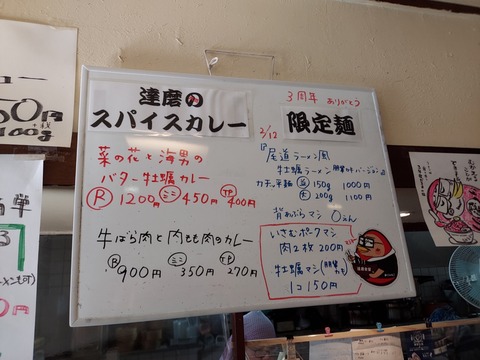 達磨の
スパイスカレー
菜の花と海男の
バター牡蠣カレー
Ⓡ 1200円 ミニ 450円 TP 400円
牛ばら肉と肉とも肉のカレー
Ⓡ 900円 ミニ 350円 TP 270円
3周年 ありがとう
3/12
限定麺
『尾道ラーメン風
牡蠣ラーメン
カタッ平麺 並 150g 1000円
大 200g 1100円
背わがらマシ 0えん
いさむポークマシ
肉2枚 200円
牡蠣マシ
1コ 150円
50円
100g
簡単